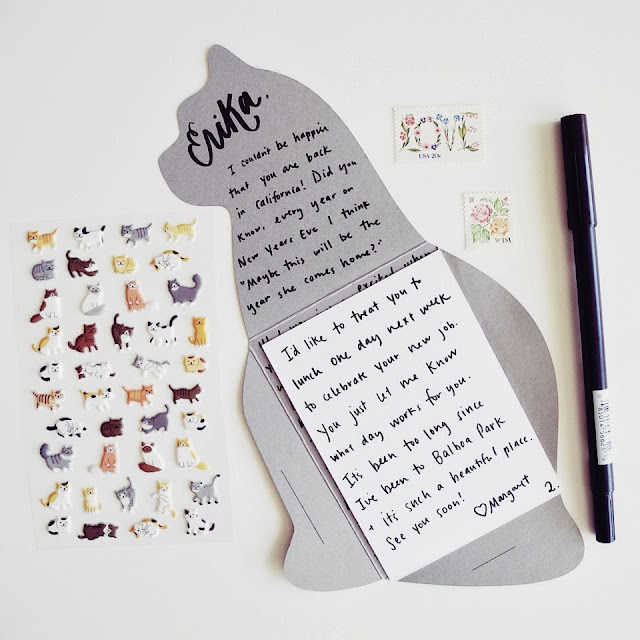 Erika.
I couldn't be happier
that you are back
in California! Did you
know, every year on
New Years Eve I think
"Maybe this will be the
year she comes home?"
excited when
I'd like to treat you to
lunch one day next week
to celebrate your new job.
You just let me know
what day works for you.
It's been too long since
I've been to Balboa Park
+ it's such a beautiful place.
See you soon!
♡ Margaret 2.
LOVE
USA 20c
USA